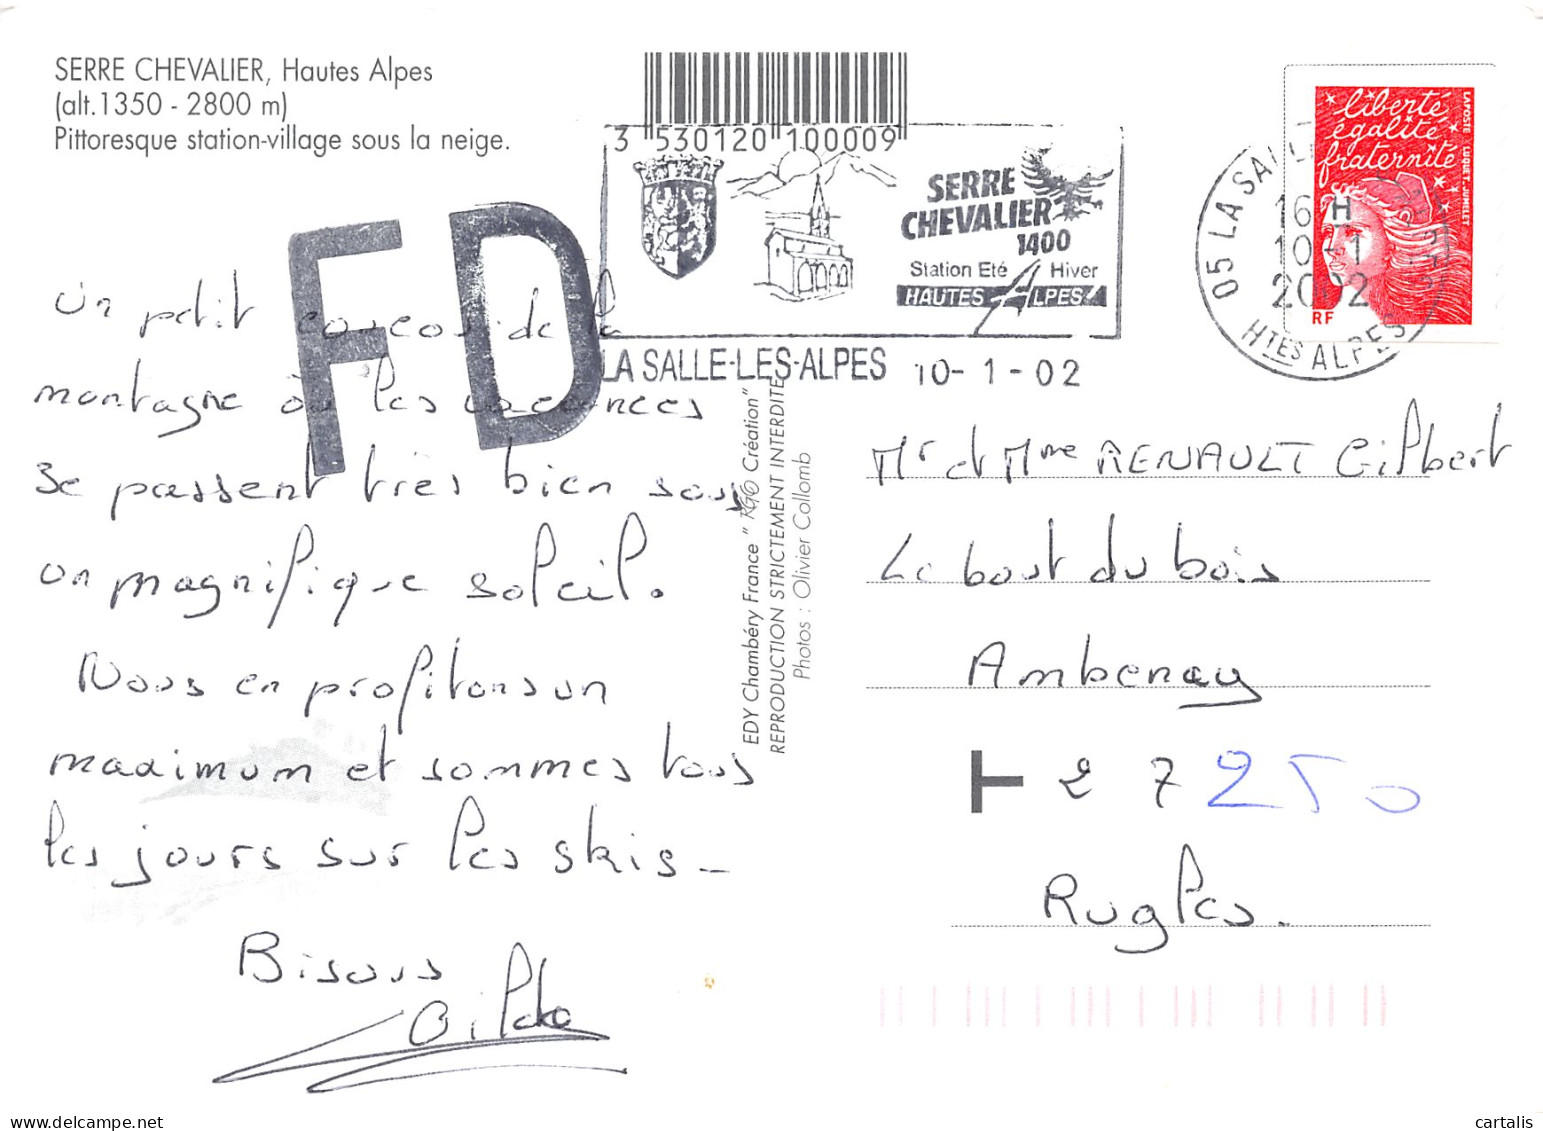 SERRE CHEVALIER, Hautes Alpes
(alt.1350 - 2800 m)
Pittoresque station-village sous la neige.
3 530120 100009
SERRE
CHEVALIER
1400
Station Eté Hiver
HAUTES ALPES
LA SALLE-LES-ALPES 10-1-02
05 LA SALLE
16 H
10-1
2002
HTES ALPES
liberté
égalité
fraternité
LAPOSTE LUQUET JUMELET
RF
FD
Un petit coucou de la
montagne où les vacances
se passent très bien sous
un magnifique soleil.
Nous en profitons un
maximum et sommes tous
les jours sur les skis_
Bisous
EDY Chambéry France " RGO Création"
REPRODUCTION STRICTEMENT INTERDITE
Photos : Olivier Collomb
Mr et Mme RENAULT Gilbert
Le bout du bois
Ambenay
T 27250
Rugles.
Delcampe.net
cartalis